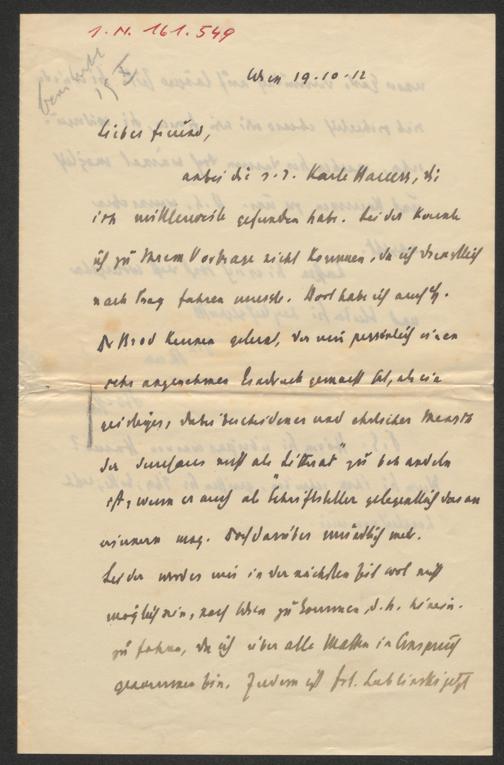 I.N. 161.549
Wien 19.10.12
Lieber Freund,
anbei die s. Z. Karte Hauers, die
ich mittlerweile gefunden habe. Leider konnte
ich zu Ihrem Vortrage nicht kommen, da ich dienstlich
nach Prag fahren musste. Dort habe ich auch
Dr Brod kennen gelernt, der mir persönlich einen
sehr angenehmen Eindruck gemacht hat, als ein
geistiger, dabei bescheidener und ehrlicher Mensch
der durchaus nicht als „Litterat" zu behandeln
ist, wenn er auch als Schriftsteller gelegentlich daran
erinnern mag. Doch darüber mündlich mehr.
Leider werde mir in der nächsten Zeit wol nicht
möglich sein, nach Wien zu kommen, d.h. hinein-
zu fahren, da ich über alle Massen in Anspruch
genommen bin. Zudem ist Frl. Lublinski jetzt